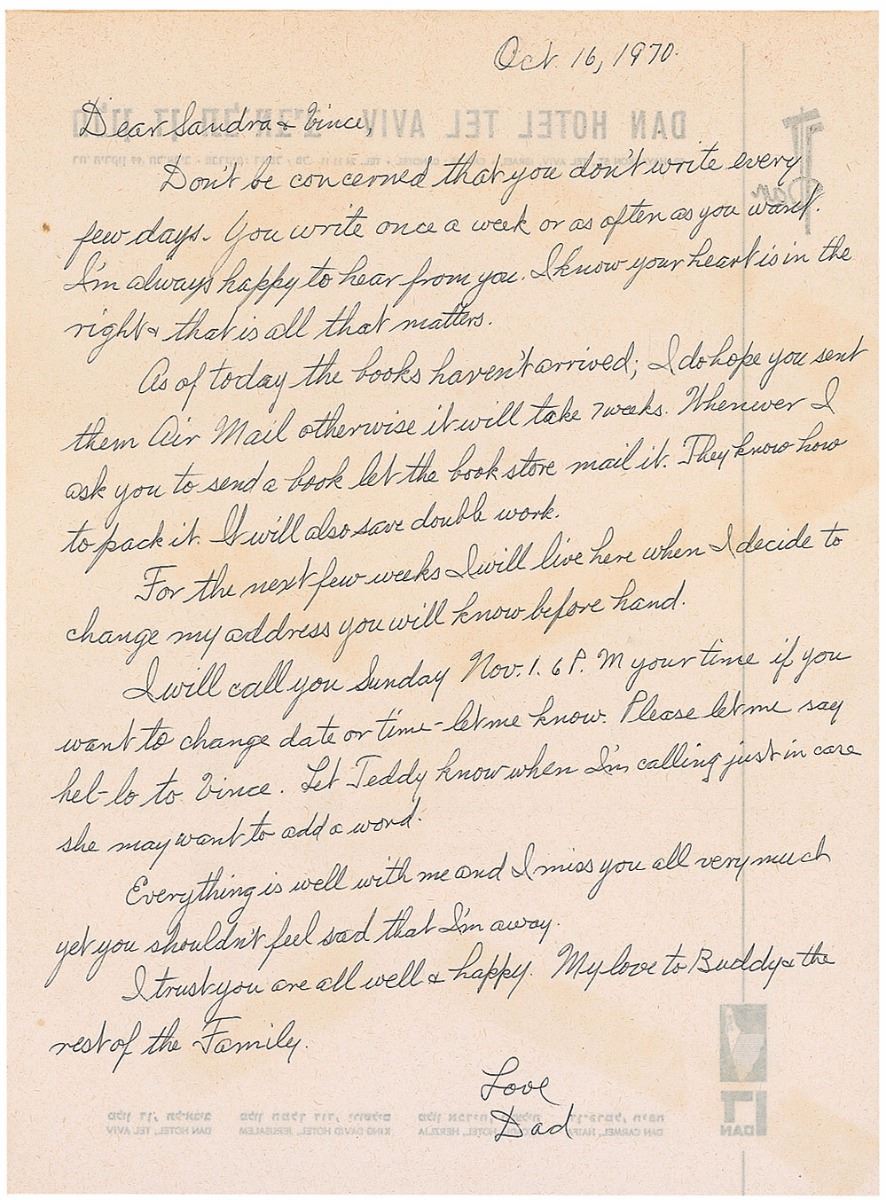 Oct. 16, 1970.
Dear Sandra & Vince,
Don't be concerned that you don't write every
few days. You write once a week or as often as you want.
I'm always happy to hear from you. I know your heart is in the
right & that is all that matters.
As of today the books haven't arrived; I do hope you sent
them Air Mail otherwise it will take 7 weeks. Whenever I
ask you to send a book let the book store mail it. They know how
to pack it. It will also save double work.
For the next few weeks I will live here when I decide to
change my address you will know before hand.
I will call you Sunday Nov. 1. 6 P. M your time if you
want to change date or time - let me know. Please let me say
hel-lo to Vince. Let Teddy know when I'm calling just in care
she may want to add a word.
Everything is well with me and I miss you all very much
yet you shouldn't feel sad that I'm away.
I trust you are all well & happy. My love to Buddy & the
rest of the Family.
Love
Dad
DAN HOTEL TEL AVIV מלון דן תל אביב
Dan
דן
DAN
DAN CARMEL, HAIFA
HOTEL, HERZLIA
KING DAVID HOTEL, JERUSALEM
DAN HOTEL, TEL AVIV